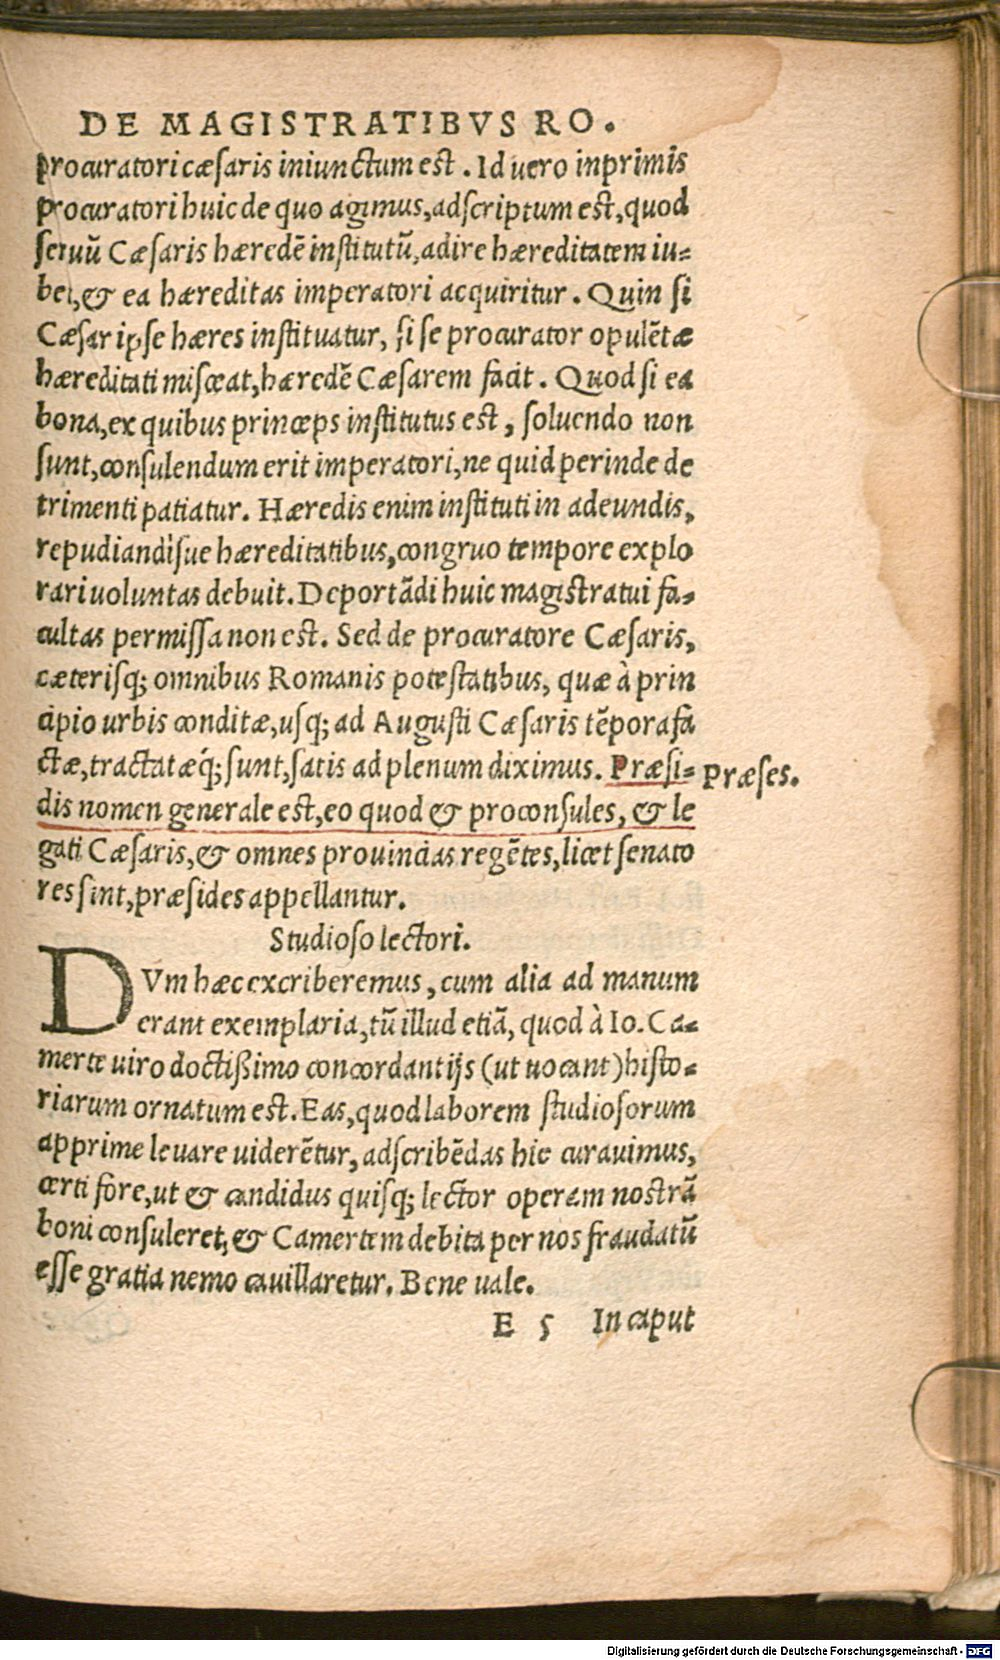 DE MAGISTRATIBVS RO.
procuratori cæsaris iniunctum est. Id uero inprimis
procuratori huic de quo agimus, adscriptum est, quod
seruū Cæsaris hæredē institutū, adire hæreditatem iu-
bet, & ea hæreditas imperatori acquiritur. Quin si
Cæsar ipse hæres instituatur, si se procurator opulētæ
hæreditati misceat, hæredē Cæsarem facit. Quod si ea
bona, ex quibus princeps institutus est, soluendo non
sunt, consulendum erit imperatori, ne quid perinde de
trimenti patiatur. Hæredis enim instituti in adeundis,
repudiandisue hæreditatibus, congruo tempore explo
rari uoluntas debuit. Deportādi huic magistratui fa-
cultas permissa non est. Sed de procuratore Cæsaris,
cæterisq; omnibus Romanis potestatibus, quæ à prin
cipio urbis conditæ, usq; ad Augusti Cæsaris tēpora fa
ctæ, tractatæq́; sunt, satis ad plenum diximus. Præsi- Præses.
dis nomen generale est, eo quod & proconsules, & le
gati Cæsaris, & omnes prouincias regētes, licet senato
res sint, præsides appellantur.
Studioso lectori.
DVm hæc excriberemus, cum alia ad manum
erant exemplaria, tū illud etiā, quod à Io. Ca-
merte uiro doctißimo concordantijs (ut uocant) histo-
riarum ornatum est. Eas, quod laborem studiosorum
apprime leuare uiderētur, adscribēdas hic curauimus,
certi fore, ut & candidus quisq; lector operam nostrā
boni consuleret, & Camertem debita per nos fraudatū
esse gratia nemo cauillaretur. Bene uale.
E 5 In caput
Digitalisierung gefördert durch die Deutsche Forschungsgemeinschaft - DFG